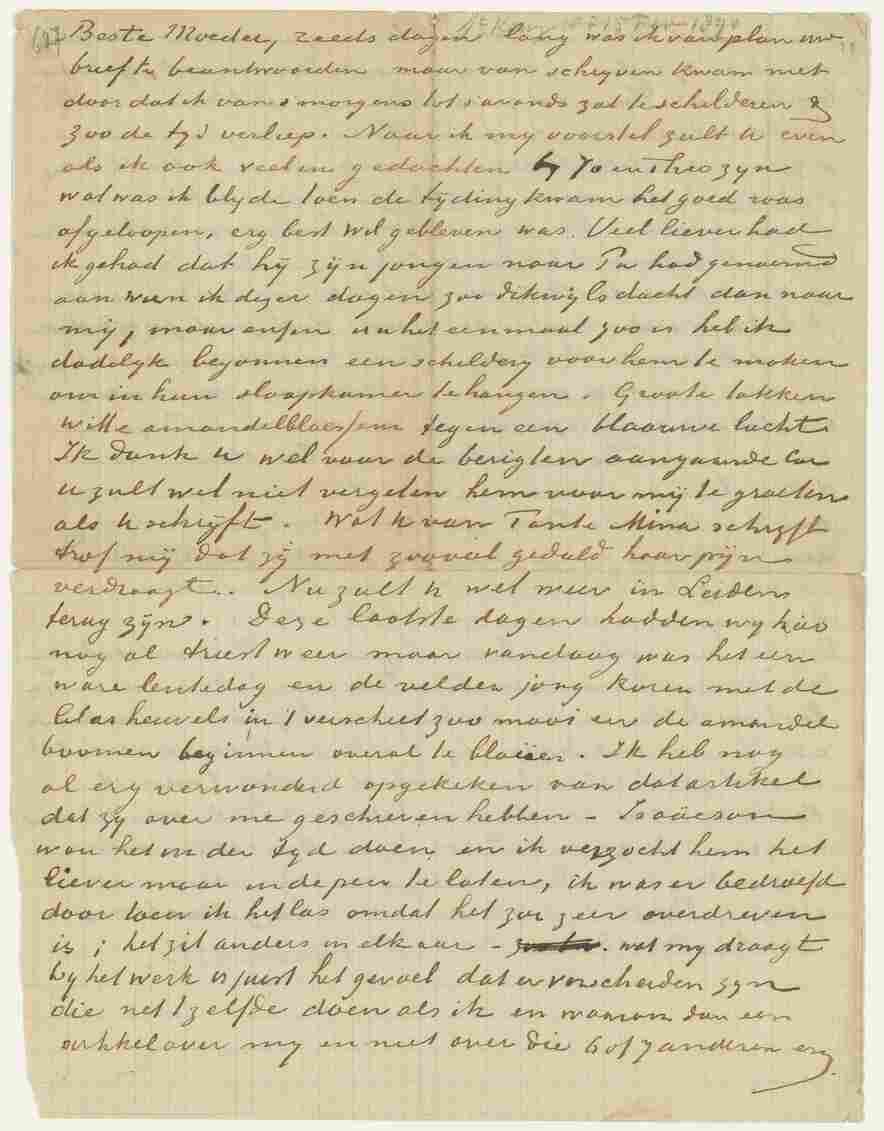 Beste Moeder, reeds dagen lang was ik van plan uw
brief te beantwoorden maar van schryven kwam niet
door dat ik van smorgens tot savonds zat te schilderen &
zoo de tyd verliep. Naar ik my voorstel zult u even
als ik ook veel in gedachten by Jo en Theo zyn
wat was ik blyde toen de tyding kwam het goed was
afgeloopen, erg best Wil gebleven was. Veel liever had
ik gehad dat hij zijn jongen naar Pa had genoemd
aan wien ik dezer dagen zoo dikwyls dacht dan naar
mij, maar enfin nu het eenmaal zoo is heb ik
dadelyk begonnen een schildery voor hem te maken
om in hun slaapkamer te hangen. Groote takken
witte amandelbloesem tegen een blaauwe lucht.
Ik dank u wel voor de berigten aangaande Cor
u zult wel niet vergeten hem voor mij te groeten
als U schrijft. Wat U van Tante Mina schrijft
trof mij dat zij met zooveel geduld haar pijn
verdraagt. Nu zult U wel weer in Leiden
terug zijn. Deze laatste dagen hadden wy hier
nog al triest weer maar vandaag was het een
ware lentedag en de velden jong koren met de
lilas heuvels in 't verschiet zoo mooi en de amandel
boomen beginnen overal te bloeien. Ik heb nog
al erg verwonderd opgekeken van dat artikel
dat zy over me geschreven hebben – Isaäcson
wou het in der tyd doen en ik verzocht hem het
liever maar in de pen te laten, ik was er bedroefd
door toen ik het las omdat het zoo zeer overdreven
is; het zit anders in elkaar – wat my draagt
by het werk is juist het gevoel dat er verscheiden zyn
die net 't zelfde doen als ik en waarom dan een
artikel over my en niet over die 6 of 7 anderen enz.